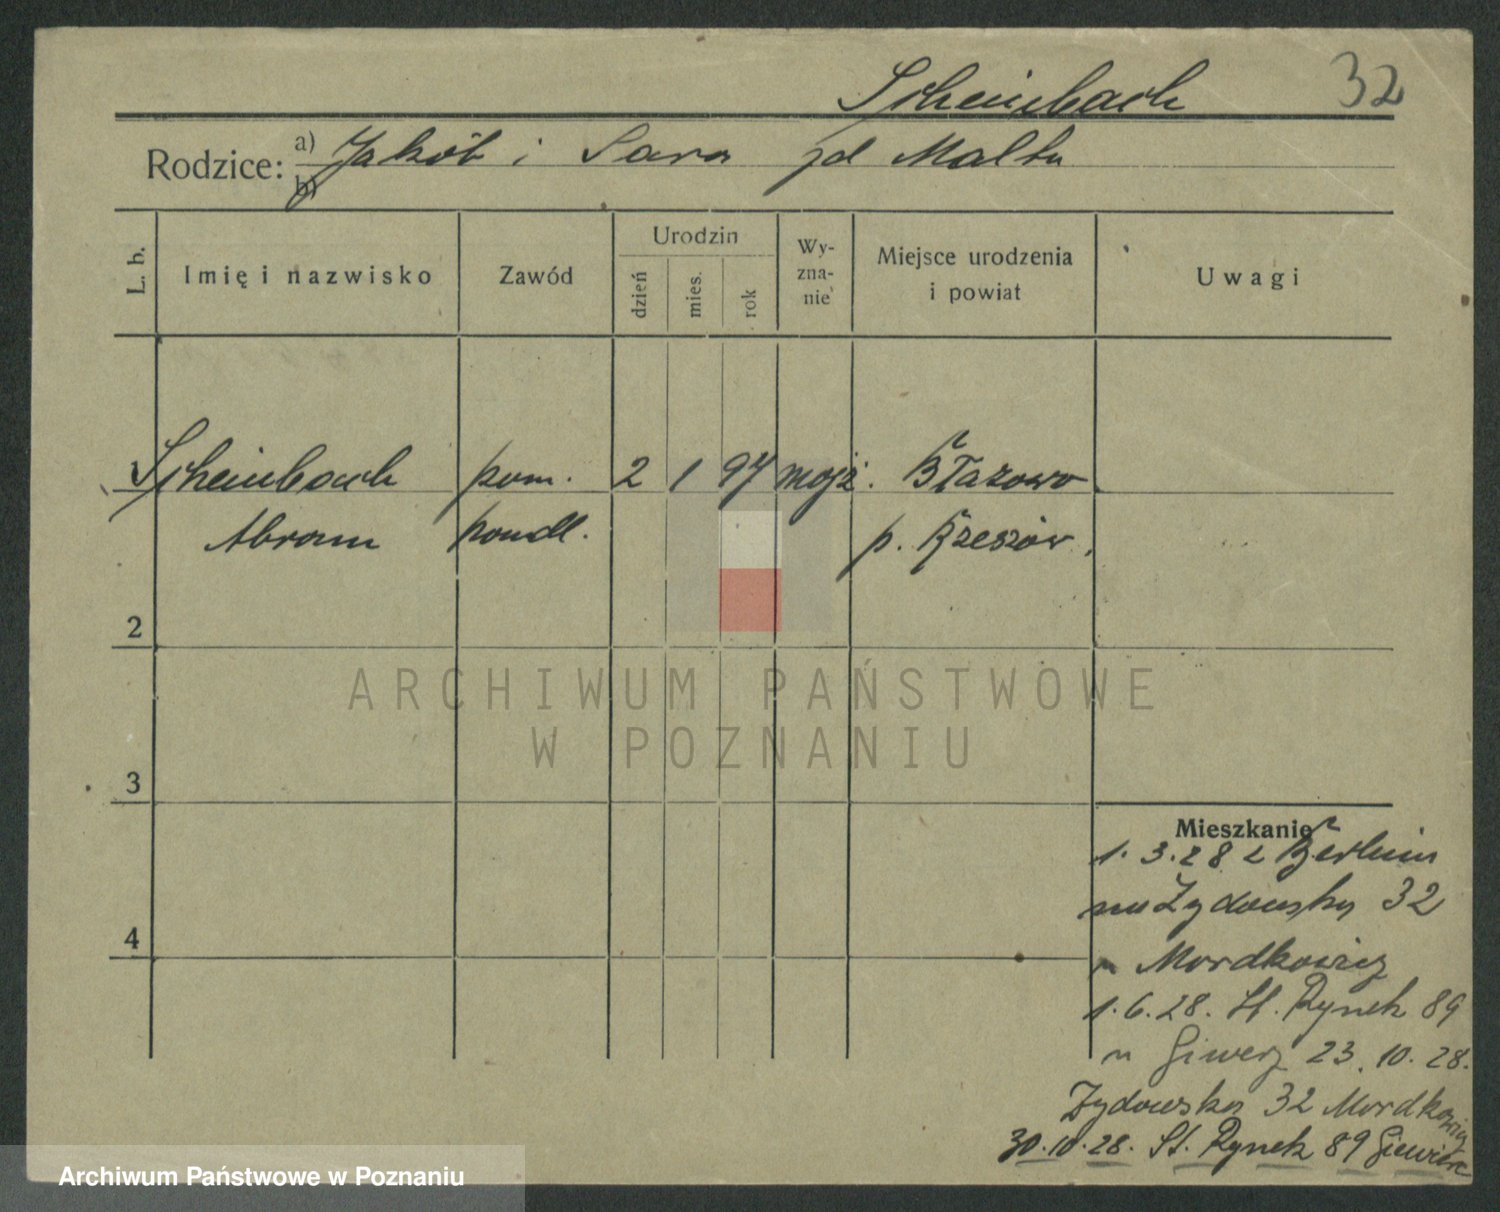 Scheinbach 32
Rodzice: a) Jakób i Sara zd Malta
b)
L. b. Imię i nazwisko Zawód Urodzin dzień mies. rok Wy-zna-nie Miejsce urodzenia i powiat Uwagi
1 Scheinbach pom. 2 1 97 mojż. Błazowo
Abram handl. p. Rzeszów
2
3
4
Mieszkanie
1.3.28 z Berlina
na Żydowska 32
u Mordkowicz
1.6.28. St. Rynek 89
u Giwerz 23.10.28.
Żydowska 32 Mordkowicz
30.10.28. St. Rynek 89
ARCHIWUM PAŃSTWOWE
W POZNANIU
Archiwum Państwowe w Poznaniu